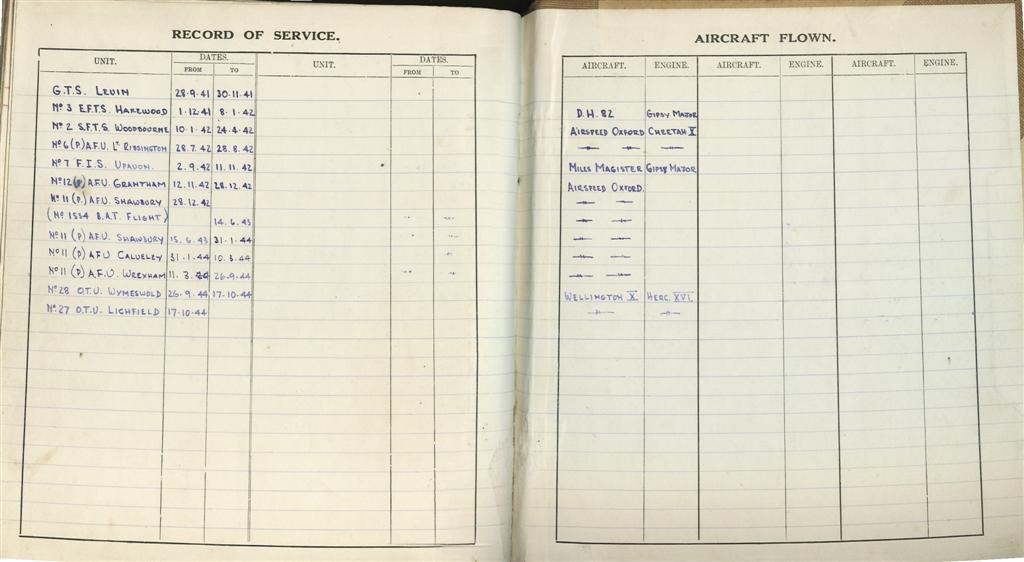 RECORD OF SERVICE.
UNIT. DATES. UNIT. DATES.
FROM TO FROM TO
G.T.S. LEVIN 28·9·41 30·11·41
No 3 E.F.T.S. HAREWOOD 1·12·41 8·1·42
No 2 S.F.T.S. WOODBOURNE 10·1·42 24·4·42
No 6 (P) A.F.U. Lt RISSINGTON 28.7.42 28.8.42
No 7 F.I.S. UPAVON. 2.9.42 11.11.42
No 12 (P) A.F.U. GRANTHAM 12.11.42 28.12.42
No 11 (P.) A.F.U. SHAWBURY 28.12.42
(No 1534 B.A.T. FLIGHT) 14.6.43
No 11 (P) A.F.U. SHAWBURY 15.6.43 31.1.44
No 11 (P) A.F.U CALVELEY 31.1.44 10.3.44
No 11 (P) A.F.U. WREXHAM 11.3.44 26.9.44
No 28 O.T.U. WYMESWOLD 26.9.44 17.10.44
No 27 O.T.U. LICHFIELD 17·10·44
AIRCRAFT FLOWN.
AIRCRAFT. ENGINE. AIRCRAFT. ENGINE. AIRCRAFT. ENGINE.
D.H. 82 GIPSY MAJOR
AIRSPEED OXFORD CHEETAH X
—"— —"— —"—
MILES MAGISTER GIPSY MAJOR
AIRSPEED OXFORD.
—"— —"—
—"— —"—
—"— —"—
—"— —"—
—"— —"—
WELLINGTON X HERC. XVI.
—"— —"—